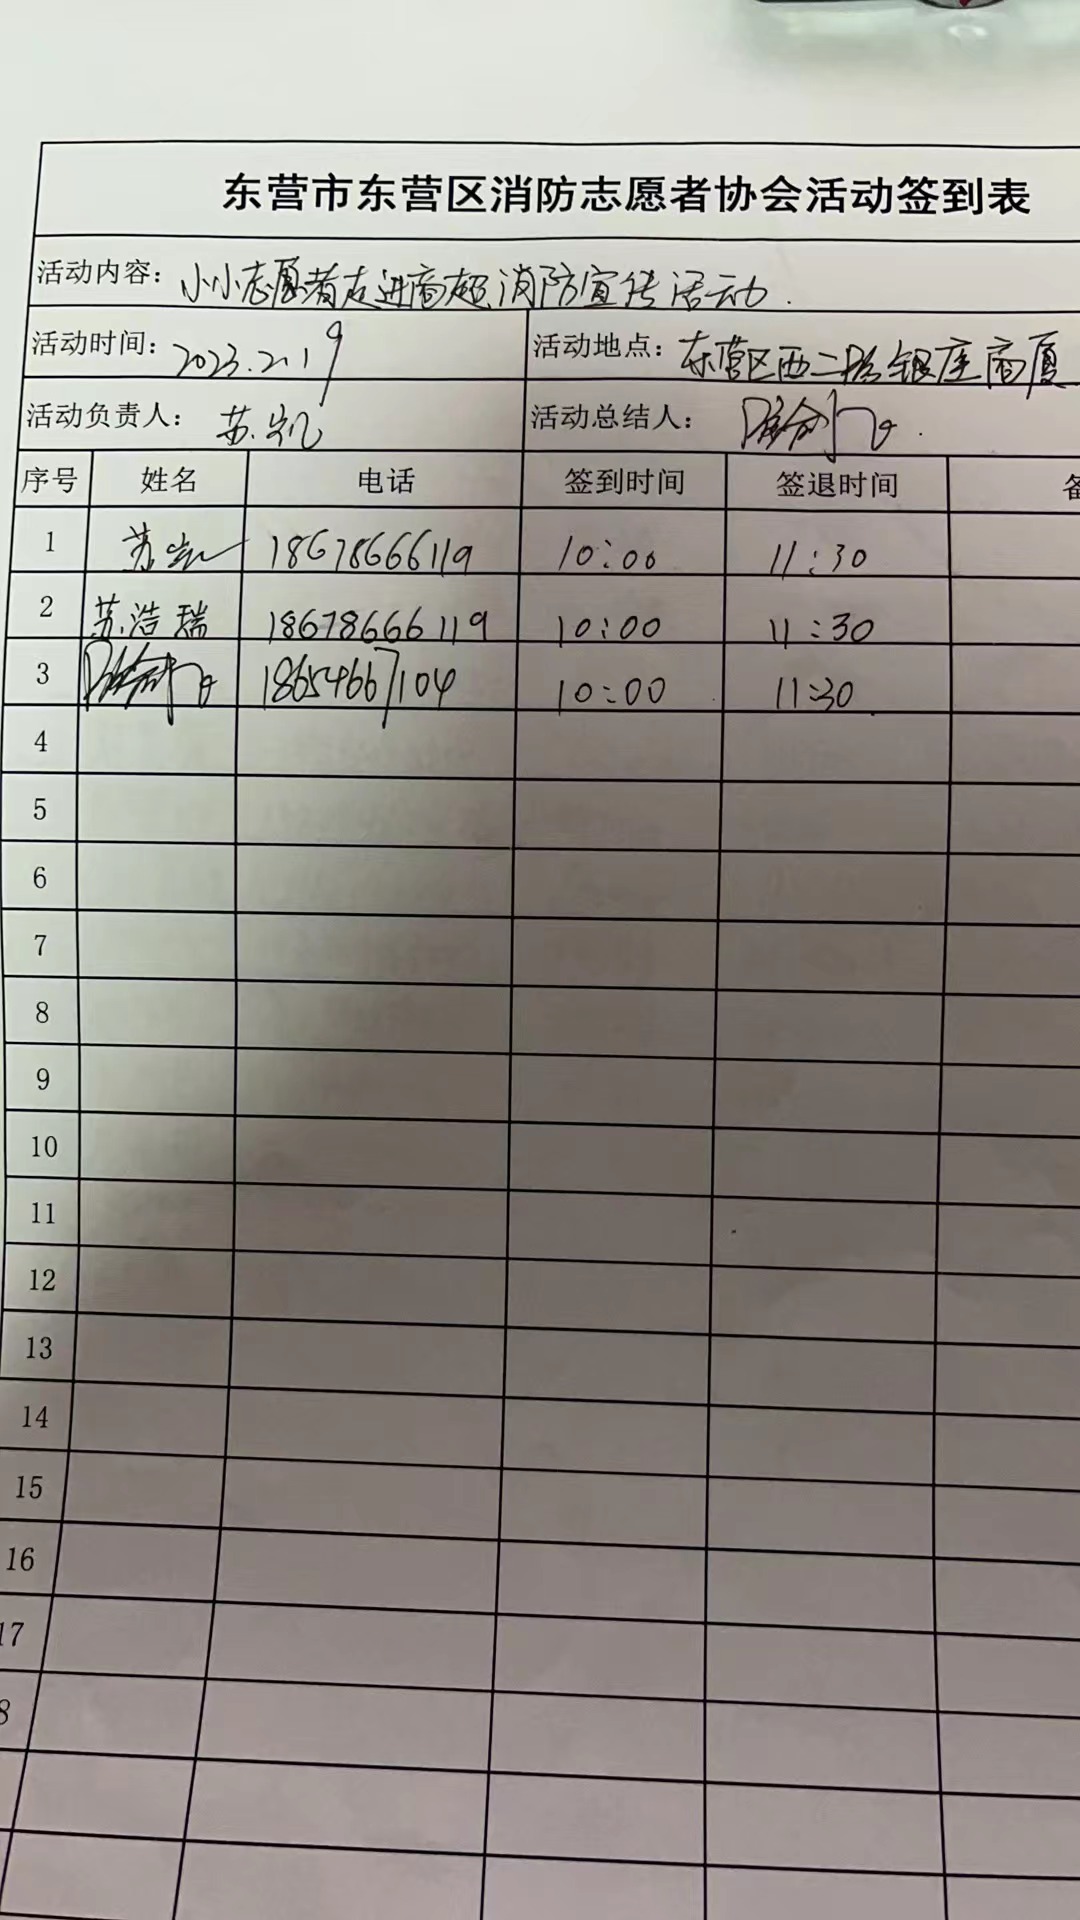 东营市东营区消防志愿者协会活动签到表
活动内容: 小小志愿者走进商超消防宣传活动.
活动时间: 2023.2.19 活动地点: 东营区西二路银座商厦
活动负责人: 苏凯 活动总结人:
序号 姓名 电话 签到时间 签退时间 备
1 苏凯 18678666119 10:00 11:30
2 苏浩瑞 18678666119 10:00 11:30
3 18654667104 10:00 11:30
4
5
6
7
8
9
10
11
12
13
14
15
16
17
8